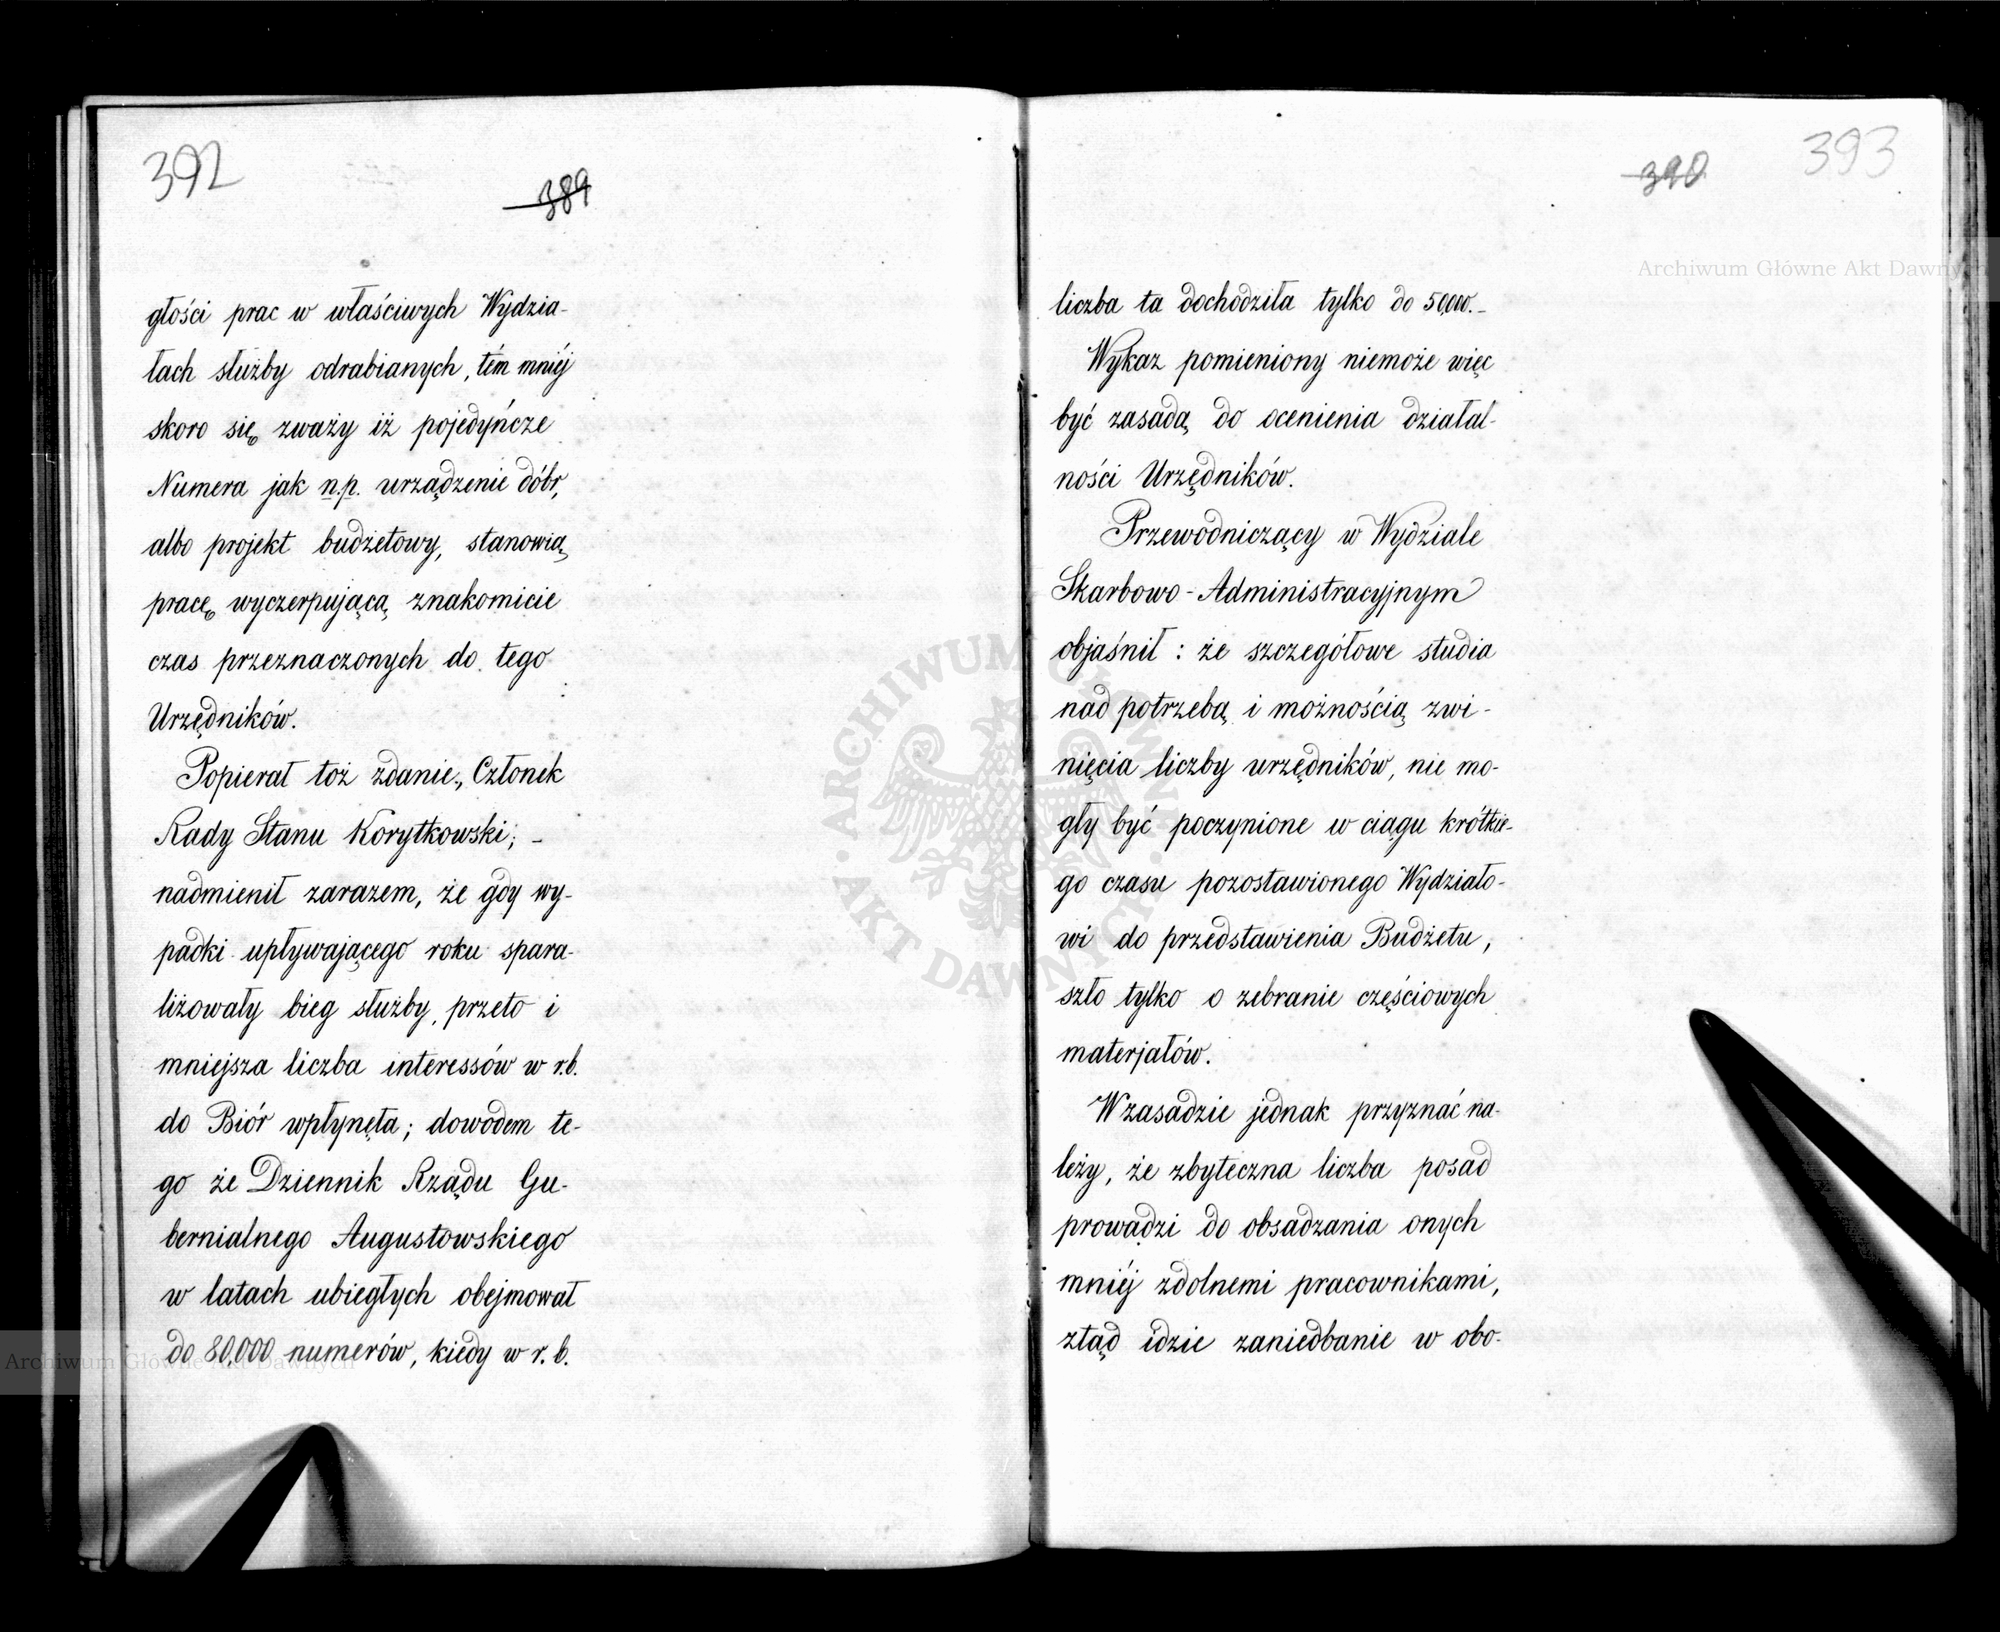 392
389
głości prac w właściwych Wydzia-
łach służby odrabianych, tém mniéj
skoro się zważy iż pojedyńcze
Numera jak n.p. urządzenie dóbr,
albo projekt budżetowy, stanowią
pracę wyczerpującą znakomicie
czas przeznaczonych do tego
Urzędników.
Popierał toż zdanie, Członek
Rady Stanu Korytkowski; -
nadmienił zarazem, że gdy wy-
padki upływającego roku spara-
liżowały bieg służby, przeto i
mniejsza liczba interessów w r.b.
do Biór wpłynęła; dowodem te-
go że Dziennik Rządu Gu-
bernialnego Augustowskiego
w latach ubiegłych obejmował
do 80,000 numerów, kiedy w r. b.
Archiwum Główne Akt Dawnych
390
393
Archiwum Główne Akt Dawnych
liczba ta dochodziła tylko do 50,000. -
Wykaz pomieniony niemoże więc
być zasadą do ocenienia działal-
ności Urzędników.
Przewodniczący w Wydziale
Skarbowo-Administracyjnym
objaśnił: że szczegółowe studia
nad potrzebą i możnością zwi-
nięcia liczby urzędników, nie mo-
gły być poczynione w ciągu krótkie-
go czasu pozostawionego Wydziało-
wi do przedstawienia Budżetu,
szło tylko o zebranie częściowych
materjałów.
W zasadzie jednak przyznać na-
leży, że zbyteczna liczba posad
prowadzi do obsadzania onych
mniéj zdolnemi pracownikami,
ztąd idzie zaniedbanie w obo-
ARCHIWUM GŁÓWNE
AKT DAWNYCH